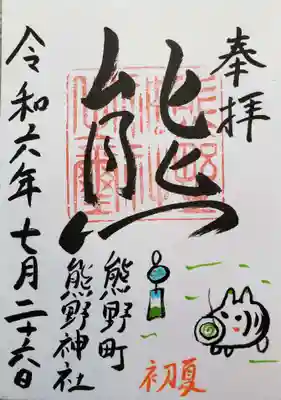 奉拝
熊
熊野町
熊野神社
令和六年七月二十六日
初夏